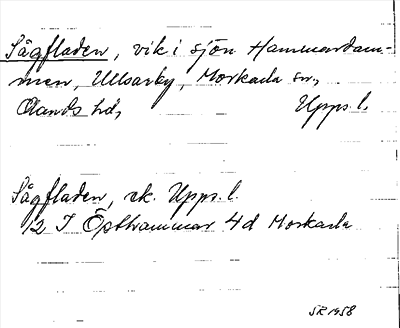 Sågfladen, vik i sjön Hammardam-
men, Ullsarby, Morkarla sn,
Olands hd, Upps. l.
Sågfladen, ek. Upps. l.
12 I Östhammar 4d Morkarla
SR 1958